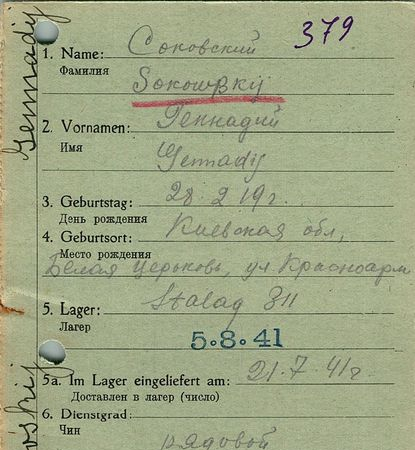 379
1. Name: Соковский
Фамилия
Sokowskij
2. Vornamen: Геннадий
Имя
Gennadij
3. Geburtstag: 28. 2 19 г.
День рождения
4. Geburtsort: Киевская обл,
Место рождения
Белая Церьковь, ул Красноарм
5. Lager: Stalag 311
Лагер
5.8.41
5a. Im Lager eingeliefert am: 21.7.41г
Доставлен в лагер (число)
6. Dienstgrad:
Чин
рядовой
Gennady